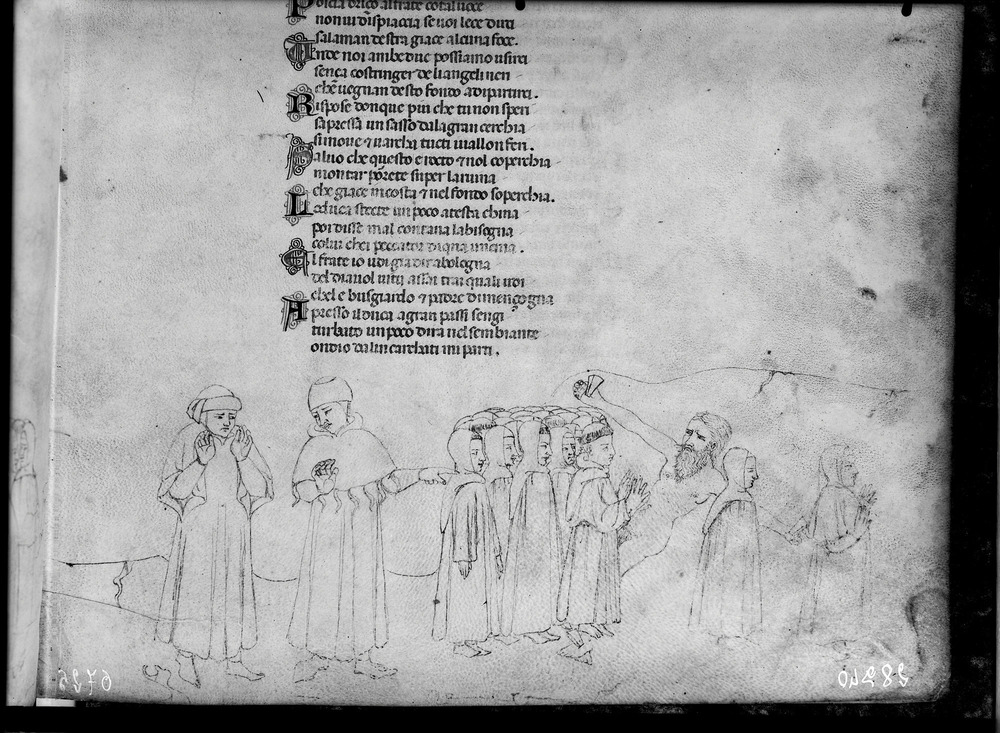 Poscia driço al frate cotal uoce
non ui dispiaccia se uoi lece dirci
sa la man destra giace alcuna foce.
Onde noi ambedue possiamo usirci
sença costringer de li angeli neri
che uegnan desto fondo a dipartirci.
Rispose donque piu che tu non speri
sapressa un sasso da la gran cerchia
si moue ⁊ uarcha tucti i uallon feri.
Saluo che questo e rocto ⁊ nol coperchia
montar potrete super la ruina
che giace in costa ⁊ nel fondo soperchia.
Lo duca stecte un poco a testa china
poi disse mal contaua la bisogna
colui che i peccator di qua uncina.
El frate io udi gia dir a bologna
del diauol uitii assai tra i quali udi
chel e busgiardo ⁊ padre di mençogna
Apresso il duca a gran passi sen gi
turbato un poco dira nel sembiante
ondio da lincarchati mi parti.